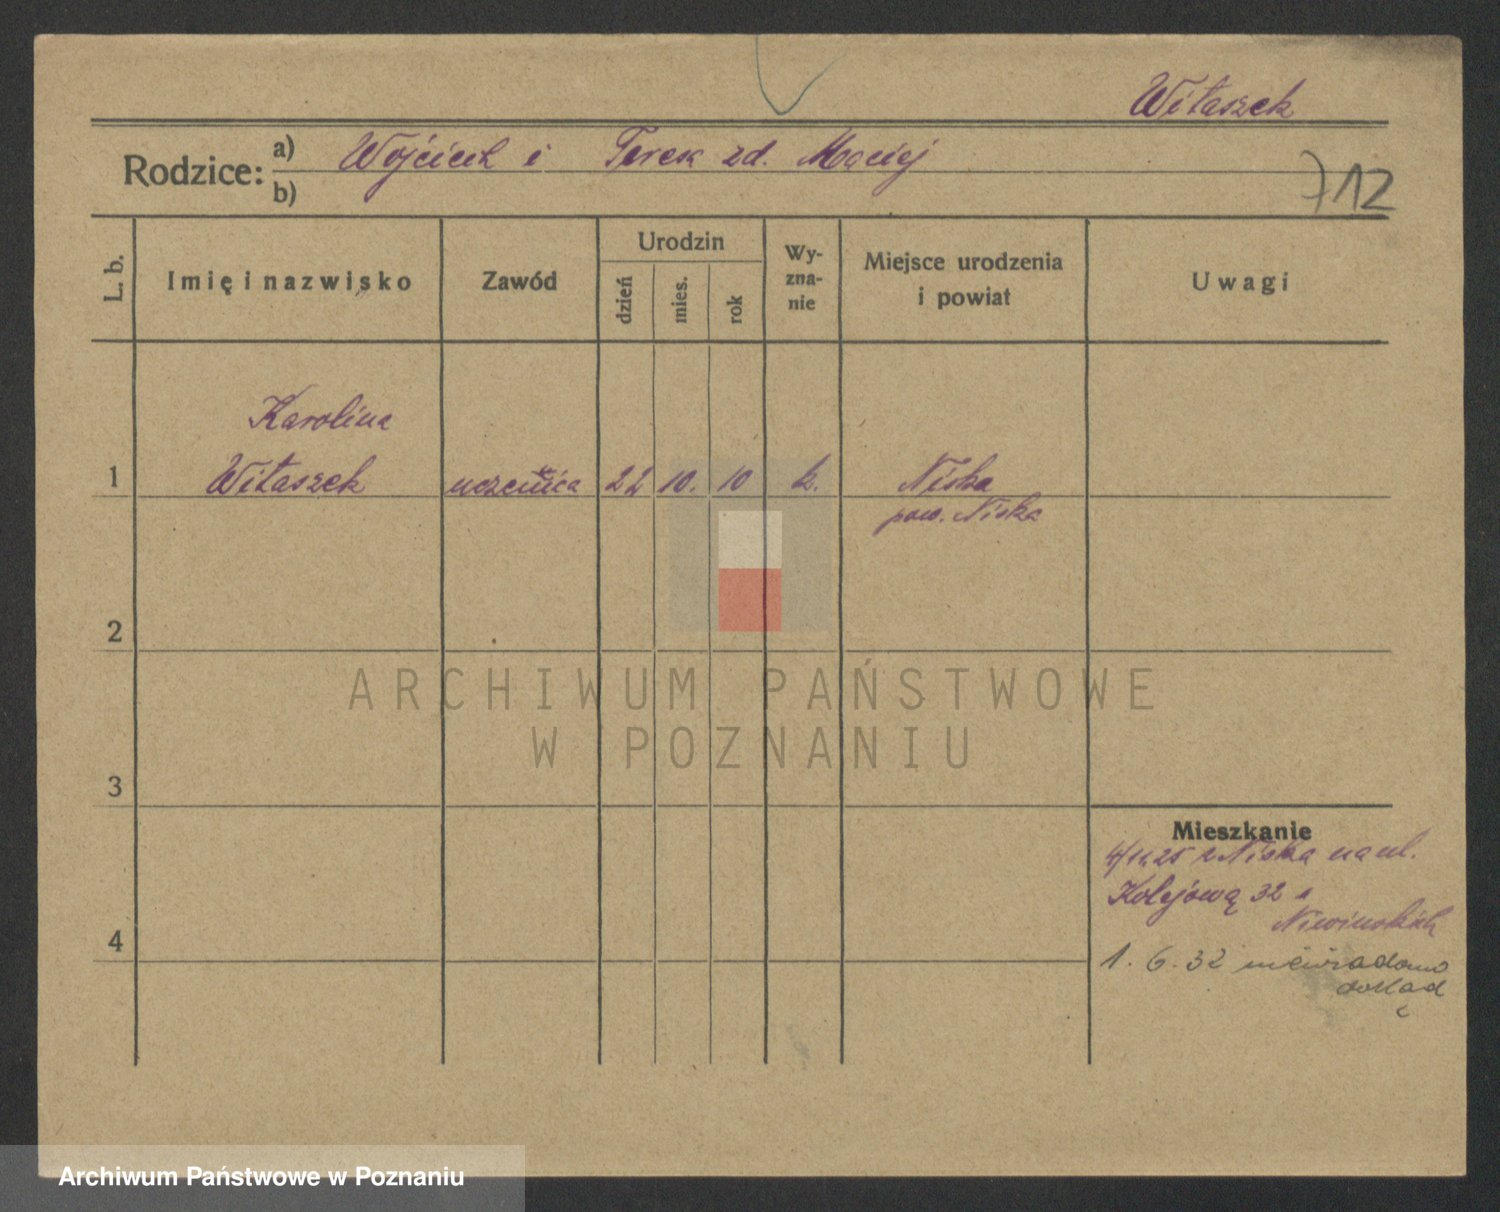 Witaszek
Rodzice: a) Wojciech i Teresa zd. Maciej
b)
712
L. b. Imię i nazwisko Zawód Urodzin dzień mies. rok Wy-zna-nie Miejsce urodzenia i powiat Uwagi
Karolina
1 Witaszek uczenica 22 10. 10 k. Niska
pow. Niska
2
ARCHIWUM PAŃSTWOWE
W POZNANIU
3
Mieszkanie
25 z Niska na ul.
Kolejową 32
Niwińskich
4
1. 6. 32 niewiadomo
dokąd
Archiwum Państwowe w Poznaniu